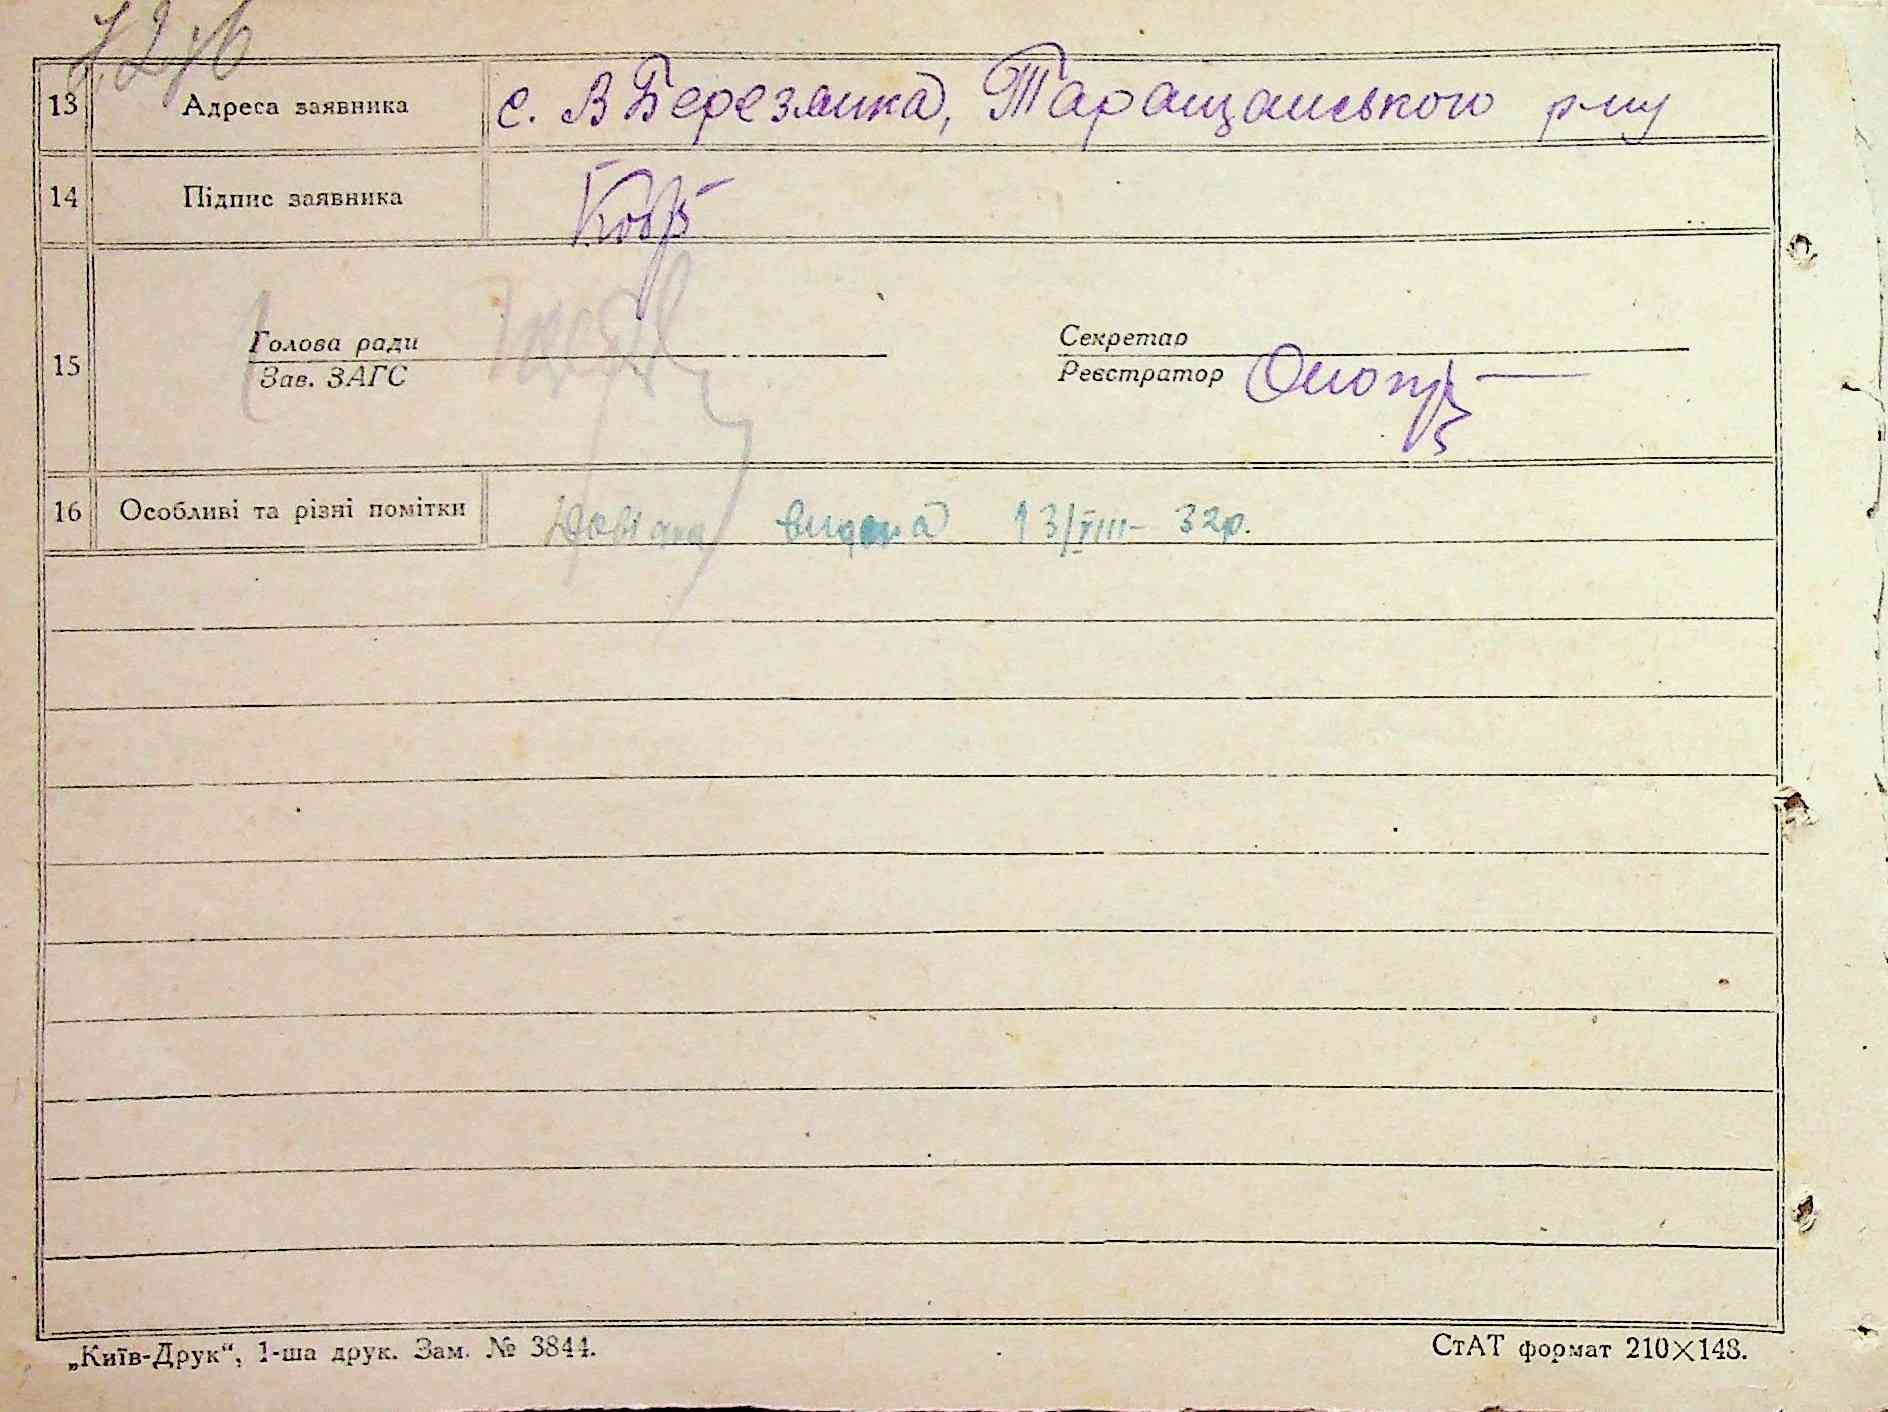 13 Адреса заявника с. В Березянка, Таращанського р-ну
14 Підпис заявника
15 Голова ради Секретар
Зав. ЗАГС Реєстратор
16 Особливі та різні помітки видана 13/VIII- 32р.
„Київ-Друк“, 1-ша друк. Зам. № 3844. СтАТ формат 210×148.